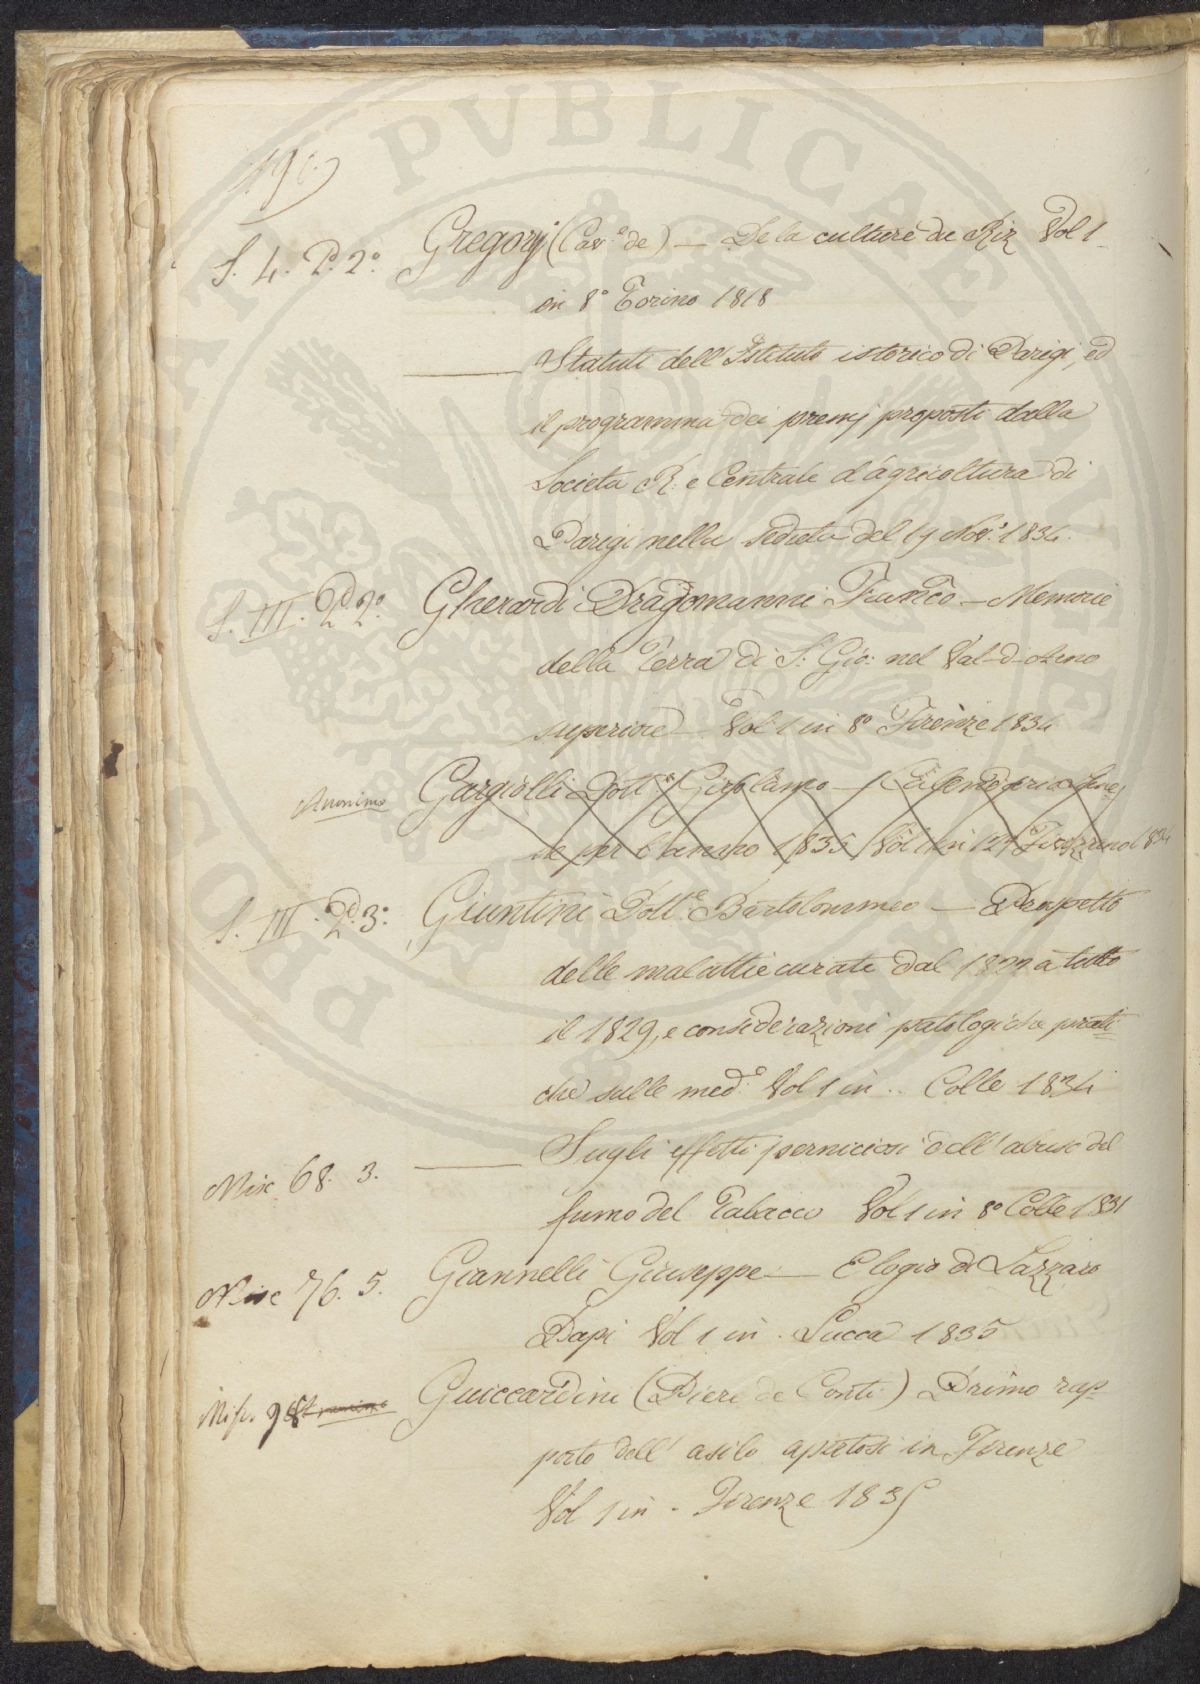 190
S. 4. P. 2º Gregorj (Cav.e de) — De la culture de Riz Vol 1
in 8º Torino 1818
Statuti dell'Istituto istorico di Parigi, ed
il programma dei premj proposti dalla
Società R: e Centrale d'agricoltura di
Parigi nella seduta del 19 Nov.e 1834.
S. III. P. 2º Gherardi Dragomanni Fran.co — Memorie
della Terra di S. Gio: nel Val-d-Arno
superiore — Vol 1 in 8º Firenze 1834
Anonimo Gargiolli Dott.e Girolamo — Calendario Sene
se per l'anno 1835 Vol 1 in 12º 1834
S. III. P. 3º Giuntini Dott.e Bartolommeo — Prospetto
delle malattie curate dal 1827 a tutto
il 1829, e considerazioni patologiche prati-
che sulle med.e Vol 1 in .. Colle 1834
Misc 68. 3. Sugli effetti perniciosi dell'abuso del
fumo del Tabacco Vol 1 in 8º Colle 1831
Misc 76. 5. Giannelli Giuseppe — Elogio di Lazzaro
Papi Vol 1 in . Lucca 1835
Misc. 98 Guiccardini (Piero de Conti) Primo rap-
porto dell' asilo apertosi in Firenze
Vol 1 in - Firenze 1835
PROPRIETAS PVBLICAE